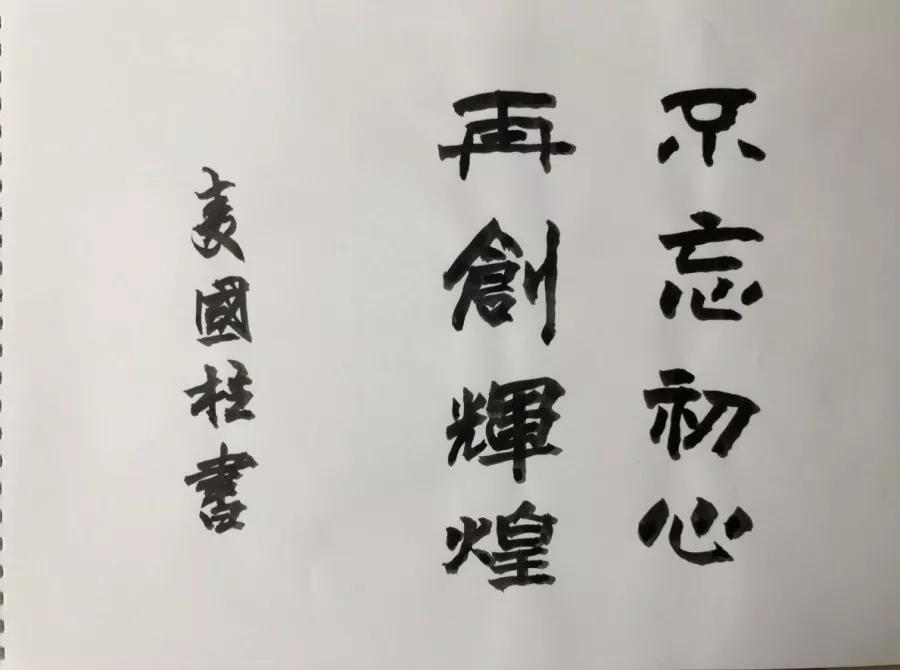 不忘初心
再創輝煌
麦國柱書